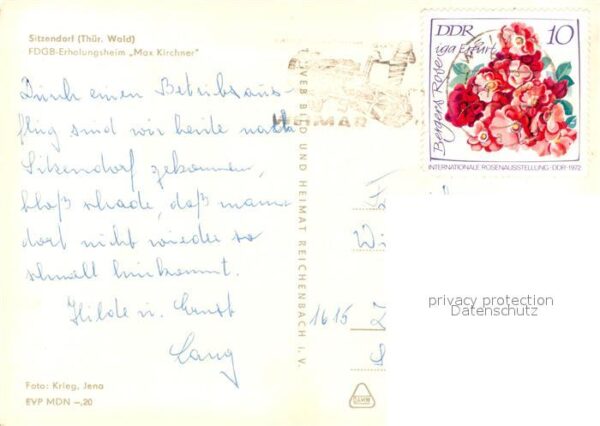 Sitzendorf (Thür. Wald)
FDGB-Erholungsheim „Max Kirchner"
Durch einen Betriebsaus-
flug sind wir heute nach
Sitzendorf gekommen,
bloß schade, daß man
dort nicht wieder so
schnell hinkommt.
Hilde u. Ernst
Lang
Foto: Krieg, Jena
EVP MDN –,20
VEB BILD UND HEIMAT REICHENBACH i. V.
WEIMAR
DDR 10
iga Erfurt
Bergers Rose
INTERNATIONALE ROSENAUSSTELLUNG · DDR · 1972
Wi
1615 Z
privacy protection
Datenschutz